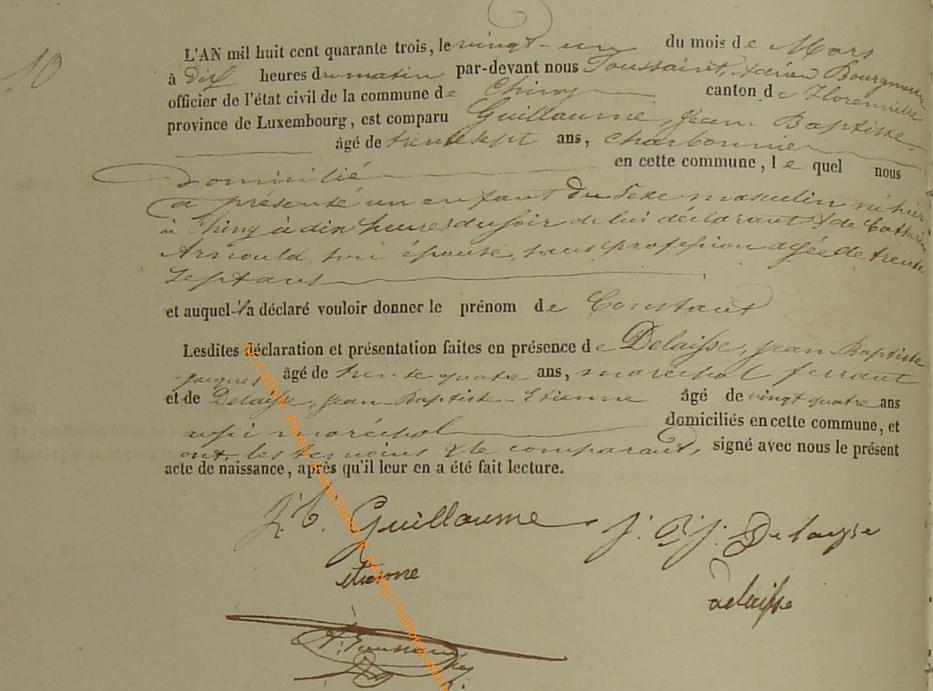 10
L'AN mil huit cent quarante trois, le vingt-un du mois de Mars
à dix heures du matin par-devant nous Toussaint, Bourgmestre
officier de l'état civil de la commune de Chiny canton de Florenville
province de Luxembourg, est comparu Guillaume, Jean Baptiste
âgé de trente sept ans, charbonnier
domicilié en cette commune, le quel nous
a présenté un enfant du sexe masculin né hier
à Chiny à dix heures du soir de lui déclarant & de Catherine
Arnould, son épouse, sans profession agée de trente
sept ans
et auquel il a déclaré vouloir donner le prénom de Constant
Lesdites déclaration et présentation faites en présence de Delaisse, Jean Baptiste
Jacques âgé de trente quatre ans, maréchal ferrant
et de Delaisse, Jean Baptiste Etienne âgé de vingt quatre ans
aussi maréchal domiciliés en cette commune, et
ont, les témoins & le comparant, signé avec nous le présent
acte de naissance, après qu'il leur en a été fait lecture.
J. B. Guillaume J. B. J. Delaisse
etienne
delaisse
A. Toussaint